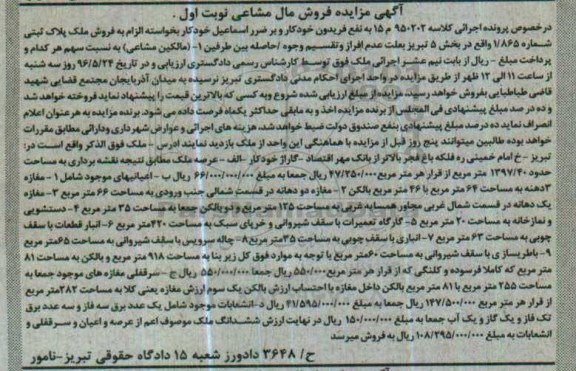 آگهی مزایده فروش مال مشاعی نوبت اول .
درخصوص پرونده اجرائی کلاسه ۹۵۰۲۰۲ م ۱۵ به نفع فریدون خودکار و بر ضرر اسماعیل خودکار بخواسته الزام به فروش ملک پلاک ثبتی
شماره ۱/۸۶۵ واقع در بخش ۵ تبریز بعلت عدم افراز وتقسیم وجوه /حاصله بین طرفین ۱- (مالکین مشاعی) به نسبت سهم هر کدام و
پرداخت مبلغ - ریال از بابت نیم عشر اجرائی ملک فوق توسط کارشناس رسمی دادگستری ارزیابی و در تاریخ ۹۶/۵/۲۴ روز سه شنبه
از ساعت ۱۱ الی ۱۲ ظهر از طریق مزایده در واحد اجرای احکام مدنی دادگستری تبریز نرسیده به میدان آذربایجان مجتمع قضایی شهید
قاضی طباطبایی بفروش خواهد رسید. مزایده از مبلغ ارزیابی شده شروع وبه کسی که بالاترین قیمت را پیشنهاد نماید فروخته خواهد شد
و ده در صد مبلغ پیشنهادی فی المجلس از برنده مزایده اخذ و به مابقی حداکثر یکماه فرصت داده می شود. برنده مزایده به هر عنوان اعلام
انصراف نماید ده در صد مبلغ پیشنهادی بنفع صندوق دولت ضبط خواهد شد. هزینه های اجرائی و عوارض شهرداری ودارائی مطابق مقررات
خواهد بوده طالبین میتوانند پنج روز قبل از مزایده با هماهنگی این واحد از ملک بازدید نمایند آدرس - ملک فوق الذکر واقع است در:
تبریز - خ امام خمینی ره فلکه باغ فجر بالاتر از بانک مهر اقتصاد -گاراژ خودکار -الف - عرصه ملک مطابق نتیجه نقشه برداری به مساحت
حدود ۱۳۹۷/۴۰ متر مربع از قرار هر متر مربع ۴۷/۲۵۰/۰۰۰ ریال جمعا به مبلغ ۶۶/۰۰۰/۰۰۰/۰۰۰ ریال ب - اعیانیهای موجود شامل ۱- مغازه
۳دهنه به مساحت ۶۴ متر مربع با ۴۶ متر مربع بالکن ۲ - مغازه دو دهانه در قسمت شمالی جنب ورودی به مساحت ۶۶ متر مربع ۳- مغازه
یک دهانه در قسمت شمال غربی مجاور همسایه غربی به مساحت ۱۲۵ متر مربع و بالکن جمعا به مساحت ۳۵ متر مربع ۴- دستشویی
و نمازخانه به مساحت ۲۰ متر مربع ۵- کارگاه تعمیرات با سقف شیروانی و خرپای سبک به مساحت ۴۲۰متر مربع ۶- انبار قطعات با سقف
چوبی به مساحت ۶۳ متر مربع ۷- انباری با سقف چوبی به مساحت ۳۵متر مربع ۸- چاله سرویس با سقف شیروانی به مساحت ۶۵متر مربع
۹- باطریسازی با سقف شیروانی به مساحت ۶۰متر مربع با توجه به موارد فوق کل زیر بنا به مساحت ۹۱۸ متر مربع و بالکن به مساحت ۸۱
متر مربع که کاملا فرسوده و کلنگی که از قرار هر متر مربع ۵۵۰/۰۰۰ ریال جمعا ۵۵۰/۰۰۰/۰۰۰ ریال ج - سرقفلی مغازه های موجود جمعا به
مساحت ۲۵۵ متر مربع با ۸۱ متر مربع بالکن داخل مغازه با احتساب ارزش بالکن یک سوم ارزش مغازه یعنی کلا به مساحت ۲۸۲متر مربع
از قرار هر متر مربع ۱۴۷/۵۰۰/۰۰۰ ریال جمعا به مبلغ ۴۱/۵۹۵/۰۰۰/۰۰۰ ریال د- انشعابات موجود شامل یک عدد برق سه فاز و سه عدد برق
تک فاز و یک گاز و یک آب جمعا به مبلغ ۱۵۰/۰۰۰/۰۰۰ ریال در نهایت ارزش ششدانگ ملک موصوف اعم از عرصه و اعیان و سرقفلی و
انشعابات به مبلغ ۱۰۸/۲۹۵/۰۰۰/۰۰۰ ریال به فروش میرسد
ح/ ۳۶۴۸ دادورز شعبه ۱۵ دادگاه حقوقی تبریز-نامور